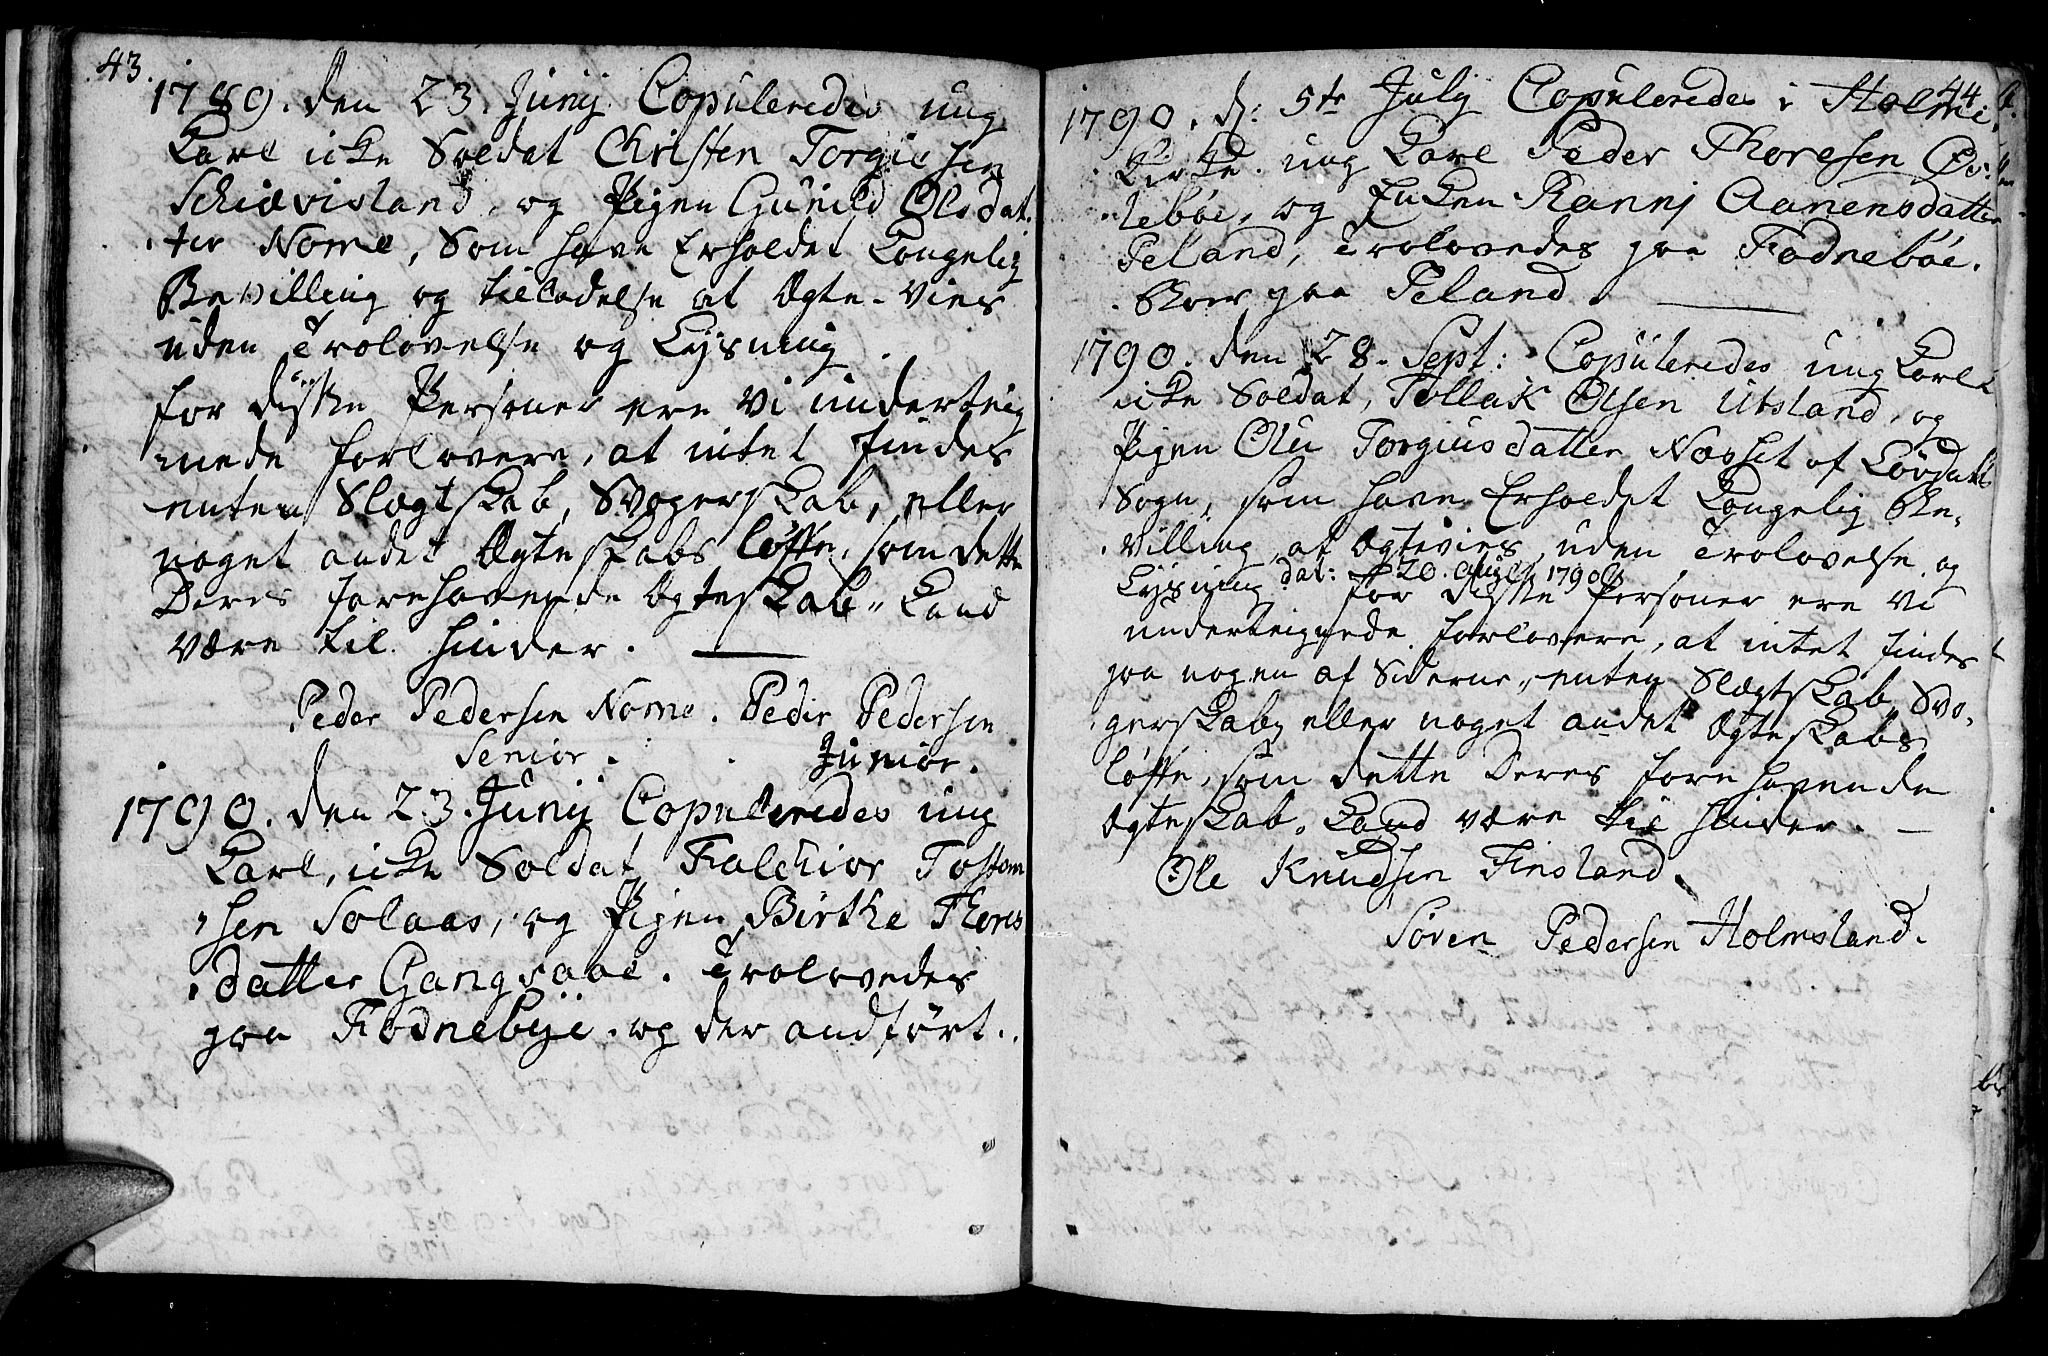 43.
1789. den 23. Junij Copuleredes ung
Karl icke Soldat Christen Torgiesen
Schiævisland, og Pigen Gunild Olsdat-
ter Nome, som have Erholdet Kongelig
Bevilling og tilladelse at Ægte-vies
uden Trolovelse og Lysning.
for disse Personer ere vi underteig
nede forlovere, at intet findes
enten Slægtskab, Svogerskab, eller
noget andet Ægteskabs løffte, som dette
Deres forehavende Ægteskab, kand
være til hinder.
Peder Pedersen Nome. Peder Pedersen
Senior. Junior.
1790. den 23. Junij Copuleredes ung
Karl, icke Soldat Falchior Tosten
sen Solaas, og Pigen Birthe Thores
datter Gangsaae. Trolovedes
paa Fodnebye. og der andført.
44
1790. d: 5te Julij Copuleredes i Holme
Kirke ung Karl Peder Thoresen Øv-
lebøe, og Enken Rannj Aanensdatter
Peland, Trolovedes paa Fodnebøe.
Boer paa Peland.
1790. den 28. Sept: Copuleredes ung Karl
icke Soldat, Tollak Olsen Utsland, og
Pigen Olu Torgiusdatter Næsset af Løvdahls
Sogn, som have Erholdet Kongelig Be-
villing, at Ægtevies, uden Trolovelse og
Lysning dat: 20. Augst 1790
for disse Personer ere vi
underteignede forlovere, at intet findes
paa nogen af Siderne, enten Slægtskab, Svo-
gerskab, eller noget andet Ægteskabs
løffte, som dette Deres forehavende
Ægteskab, kand være til hinder.
Ole Knudsen Finsland.
Søren Pedersen Holmsland.